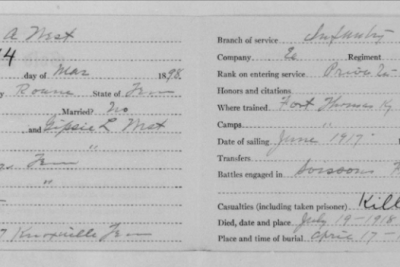 A West
day of Mar 1895
Roane State of Tenn
Married? No
and Gipsie L West
"
Tenn
"
Knoxville Tenn
Branch of service Infantry
Company Regiment
Rank on entering service Private
Honors and citations
Where trained Fort Thomas Ky
Camps "
Date of sailing June 1917
Transfers
Battles engaged in Soissons
Casualties (including taken prisoner) Kill
Died, date and place July 19-1918
Place and time of burial April 17-